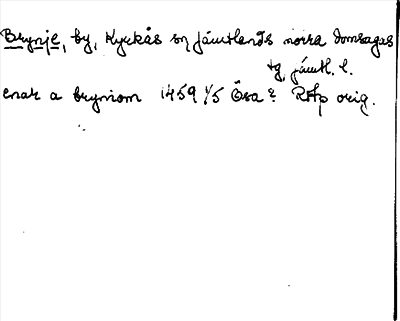 Brynje, by, Kyrkås sn Jämtlands norra domsagas
tg, Jämtl. l.
enar a bryniom 1459 1/5 Ösa? RAp orig.